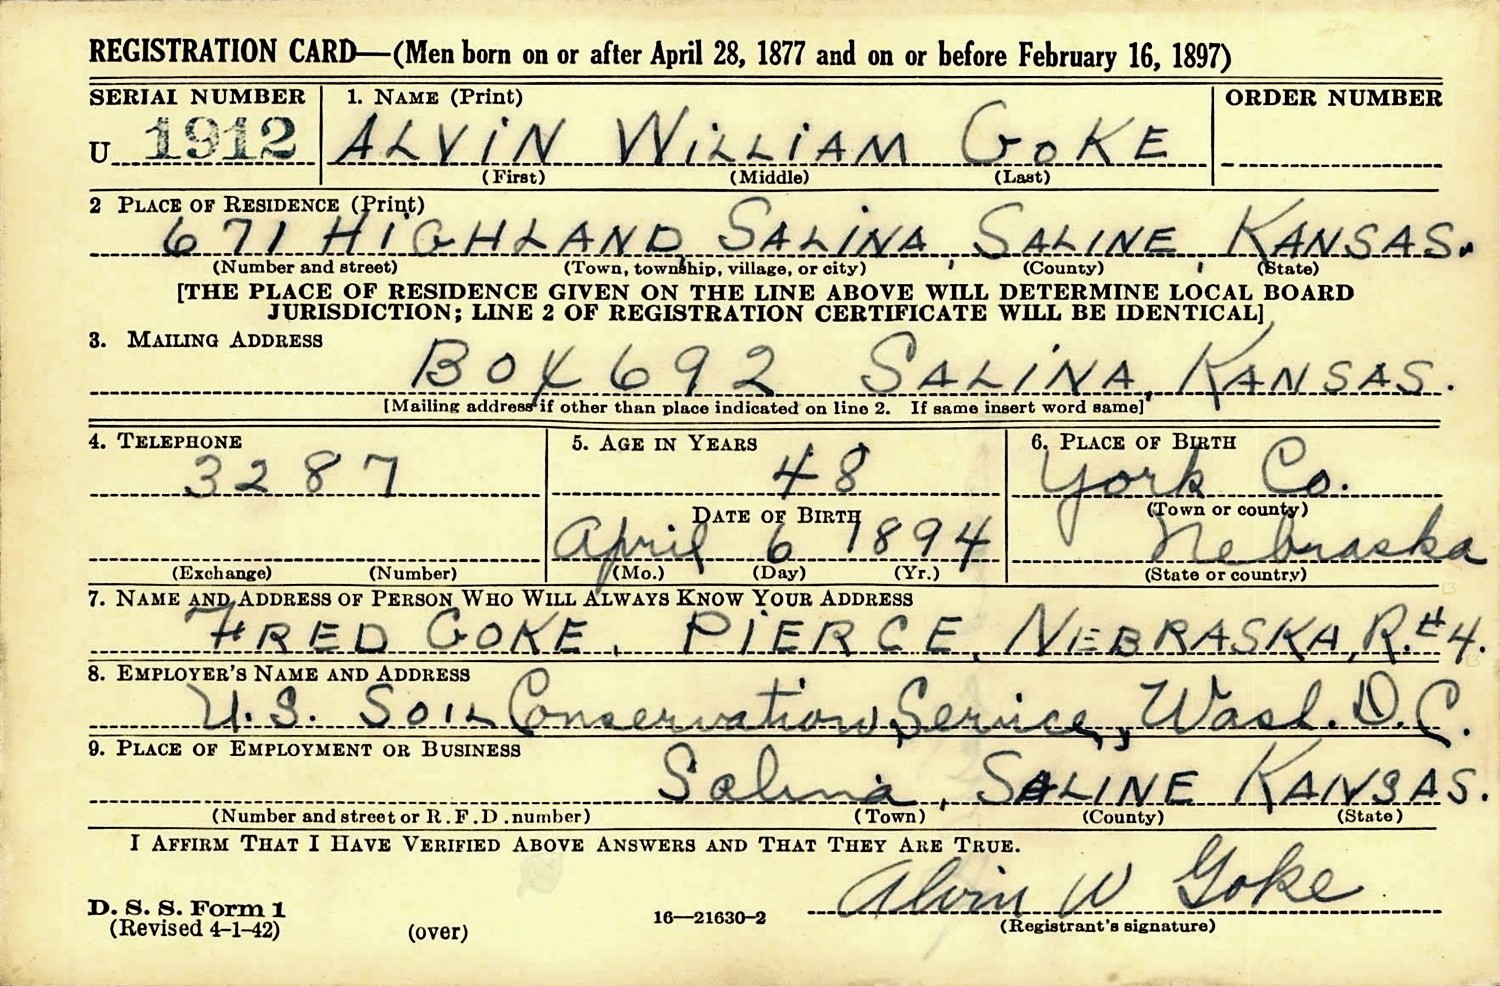 REGISTRATION CARD—(Men born on or after April 28, 1877 and on or before February 16, 1897)
SERIAL NUMBER 1. NAME (Print) ORDER NUMBER
U 1912 ALVIN WILLIAM GOKE
(First) (Middle) (Last)
2 PLACE OF RESIDENCE (Print)
671 HIGHLAND, SALINA, SALINE, KANSAS.
(Number and street) (Town, township, village, or city) (County) (State)
[THE PLACE OF RESIDENCE GIVEN ON THE LINE ABOVE WILL DETERMINE LOCAL BOARD
JURISDICTION; LINE 2 OF REGISTRATION CERTIFICATE WILL BE IDENTICAL]
3. MAILING ADDRESS
BOX 692 SALINA, KANSAS.
[Mailing address if other than place indicated on line 2. If same insert word same]
4. TELEPHONE 5. AGE IN YEARS 6. PLACE OF BIRTH
3287 48 York Co.
DATE OF BIRTH (Town or county)
April 6 1894 Nebraska
(Exchange) (Number) (Mo.) (Day) (Yr.) (State or country)
7. NAME AND ADDRESS OF PERSON WHO WILL ALWAYS KNOW YOUR ADDRESS
FRED GOKE, PIERCE, NEBRASKA, R.#4.
8. EMPLOYER'S NAME AND ADDRESS
U.S. SOIL Conservation, Service, Wash. D.C.
9. PLACE OF EMPLOYMENT OR BUSINESS
Salina, SALINE KANSAS.
(Number and street or R.F.D. number) (Town) (County) (State)
I AFFIRM THAT I HAVE VERIFIED ABOVE ANSWERS AND THAT THEY ARE TRUE.
Alvin W Goke
D. S. S. Form 1 16—21630-2
(Revised 4-1-42) (over) (Registrant's signature)